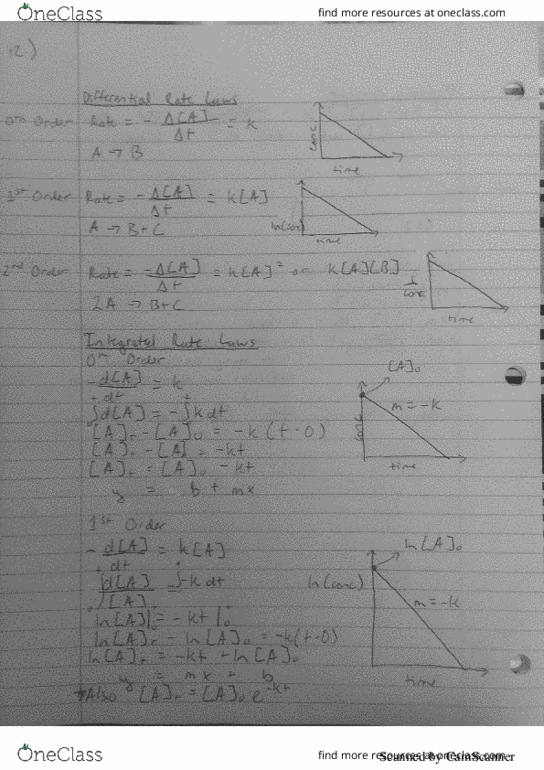 OneClass
find more resources at oneclass.com
12.)
Differential Rate Laws
0th Order Rate = - Δ[A]/Δt = k
A → B
conc
time
1st Order Rate = - Δ[A]/Δt = k[A]
A → B+C
ln(conc)
time
2nd Order Rate = -Δ[A]/Δt = k[A]² or k[A][B]
2A → B+C
1/conc
time
Integrated Rate Laws
0th Order
-d[A]/dt = k
∫d[A] = -∫k dt
[A]t - [A]0 = -k(t-0)
[A]t - [A] = -kt
[A]t = [A]0 -kt
y = b + mx
[A]0
m = -k
conc
time
1st Order
-d[A]/dt = k[A]
∫d[A]/[A] = -∫k dt
ln[A]|0 = -kt|0
ln[A]t - ln[A]0 = -k(t-0)
ln[A]t = -kt + ln[A]0
y = mx + b
*Also [A]t = [A]0 e^-kt
ln[A]0
ln(conc)
m = -k
time
OneClass
find more resources at oneclass.com
Scanned by CamScanner